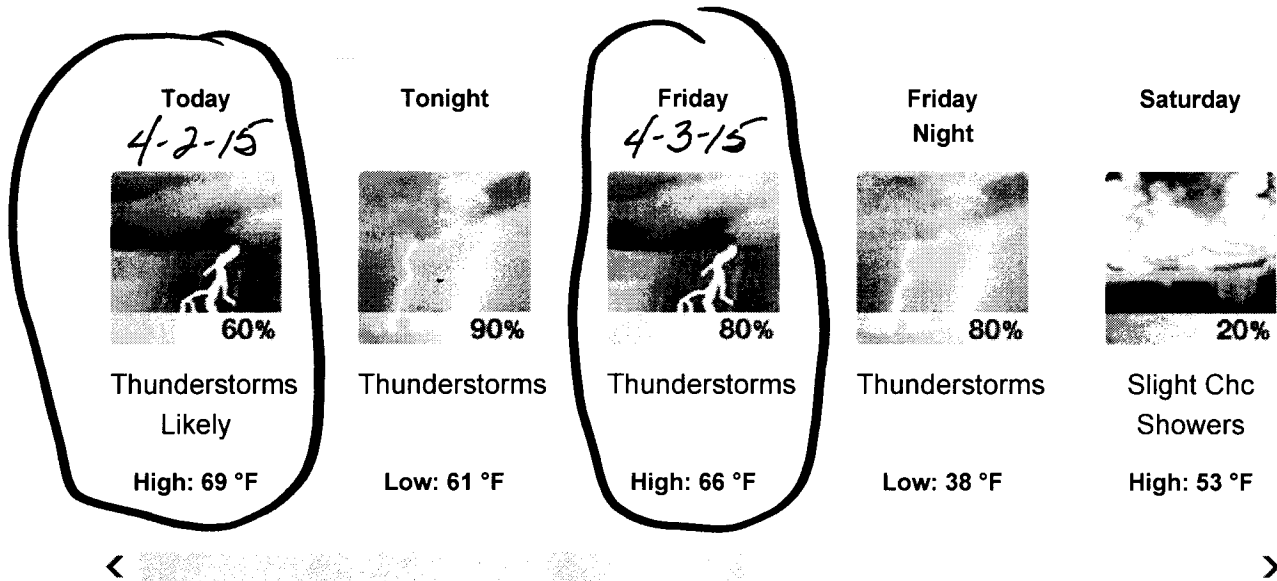 Today
4-2-15
60%
Thunderstorms
Likely
High: 69 °F
Tonight
90%
Thunderstorms
Low: 61 °F
Friday
4-3-15
80%
Thunderstorms
High: 66 °F
Friday
Night
80%
Thunderstorms
Low: 38 °F
Saturday
20%
Slight Chc
Showers
High: 53 °F